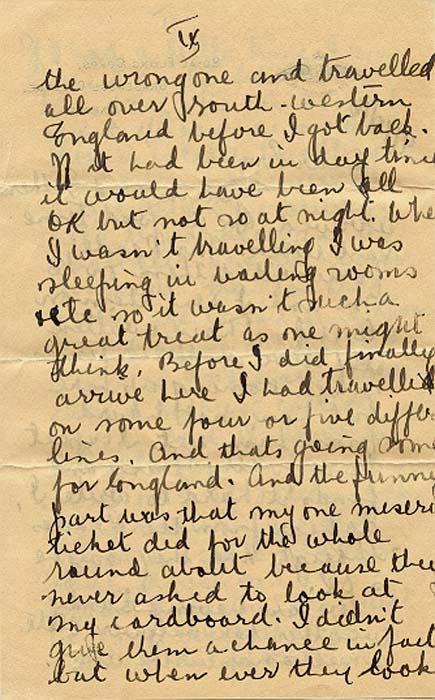 IX
the wrong one and travelled
all over south-western
England before I got back.
If it had been in day time
it would have been all
OK but not so at night. Whe
I wasn't travelling I was
sleeping in waiting rooms
etc so it wasn't such a
great treat as one might
think. Before I did finally
arrive here I had travelled
on some four or five differ
lines. And thats going some
for England. And the funnie
part was that my one miser
ticket did for the whole
round about because they
never asked to look at
my cardboard. I didn't
give them a chance in fact
but when ever they look